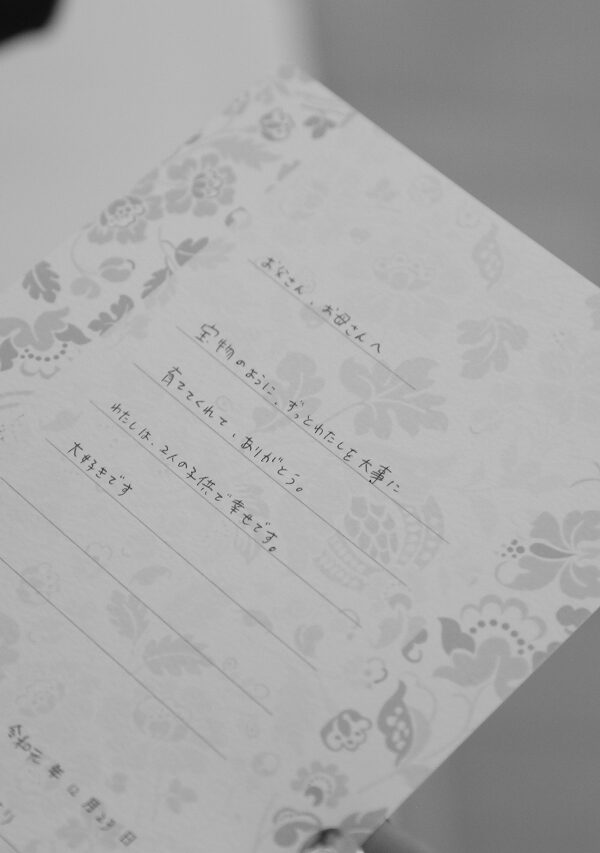 お父さん、お母さんへ
宝物のように、ずっとわたしを大事に
育ててくれて、ありがとう。
わたしは、2人の子供で幸せです。
大好きです
令和元年12月23日
より